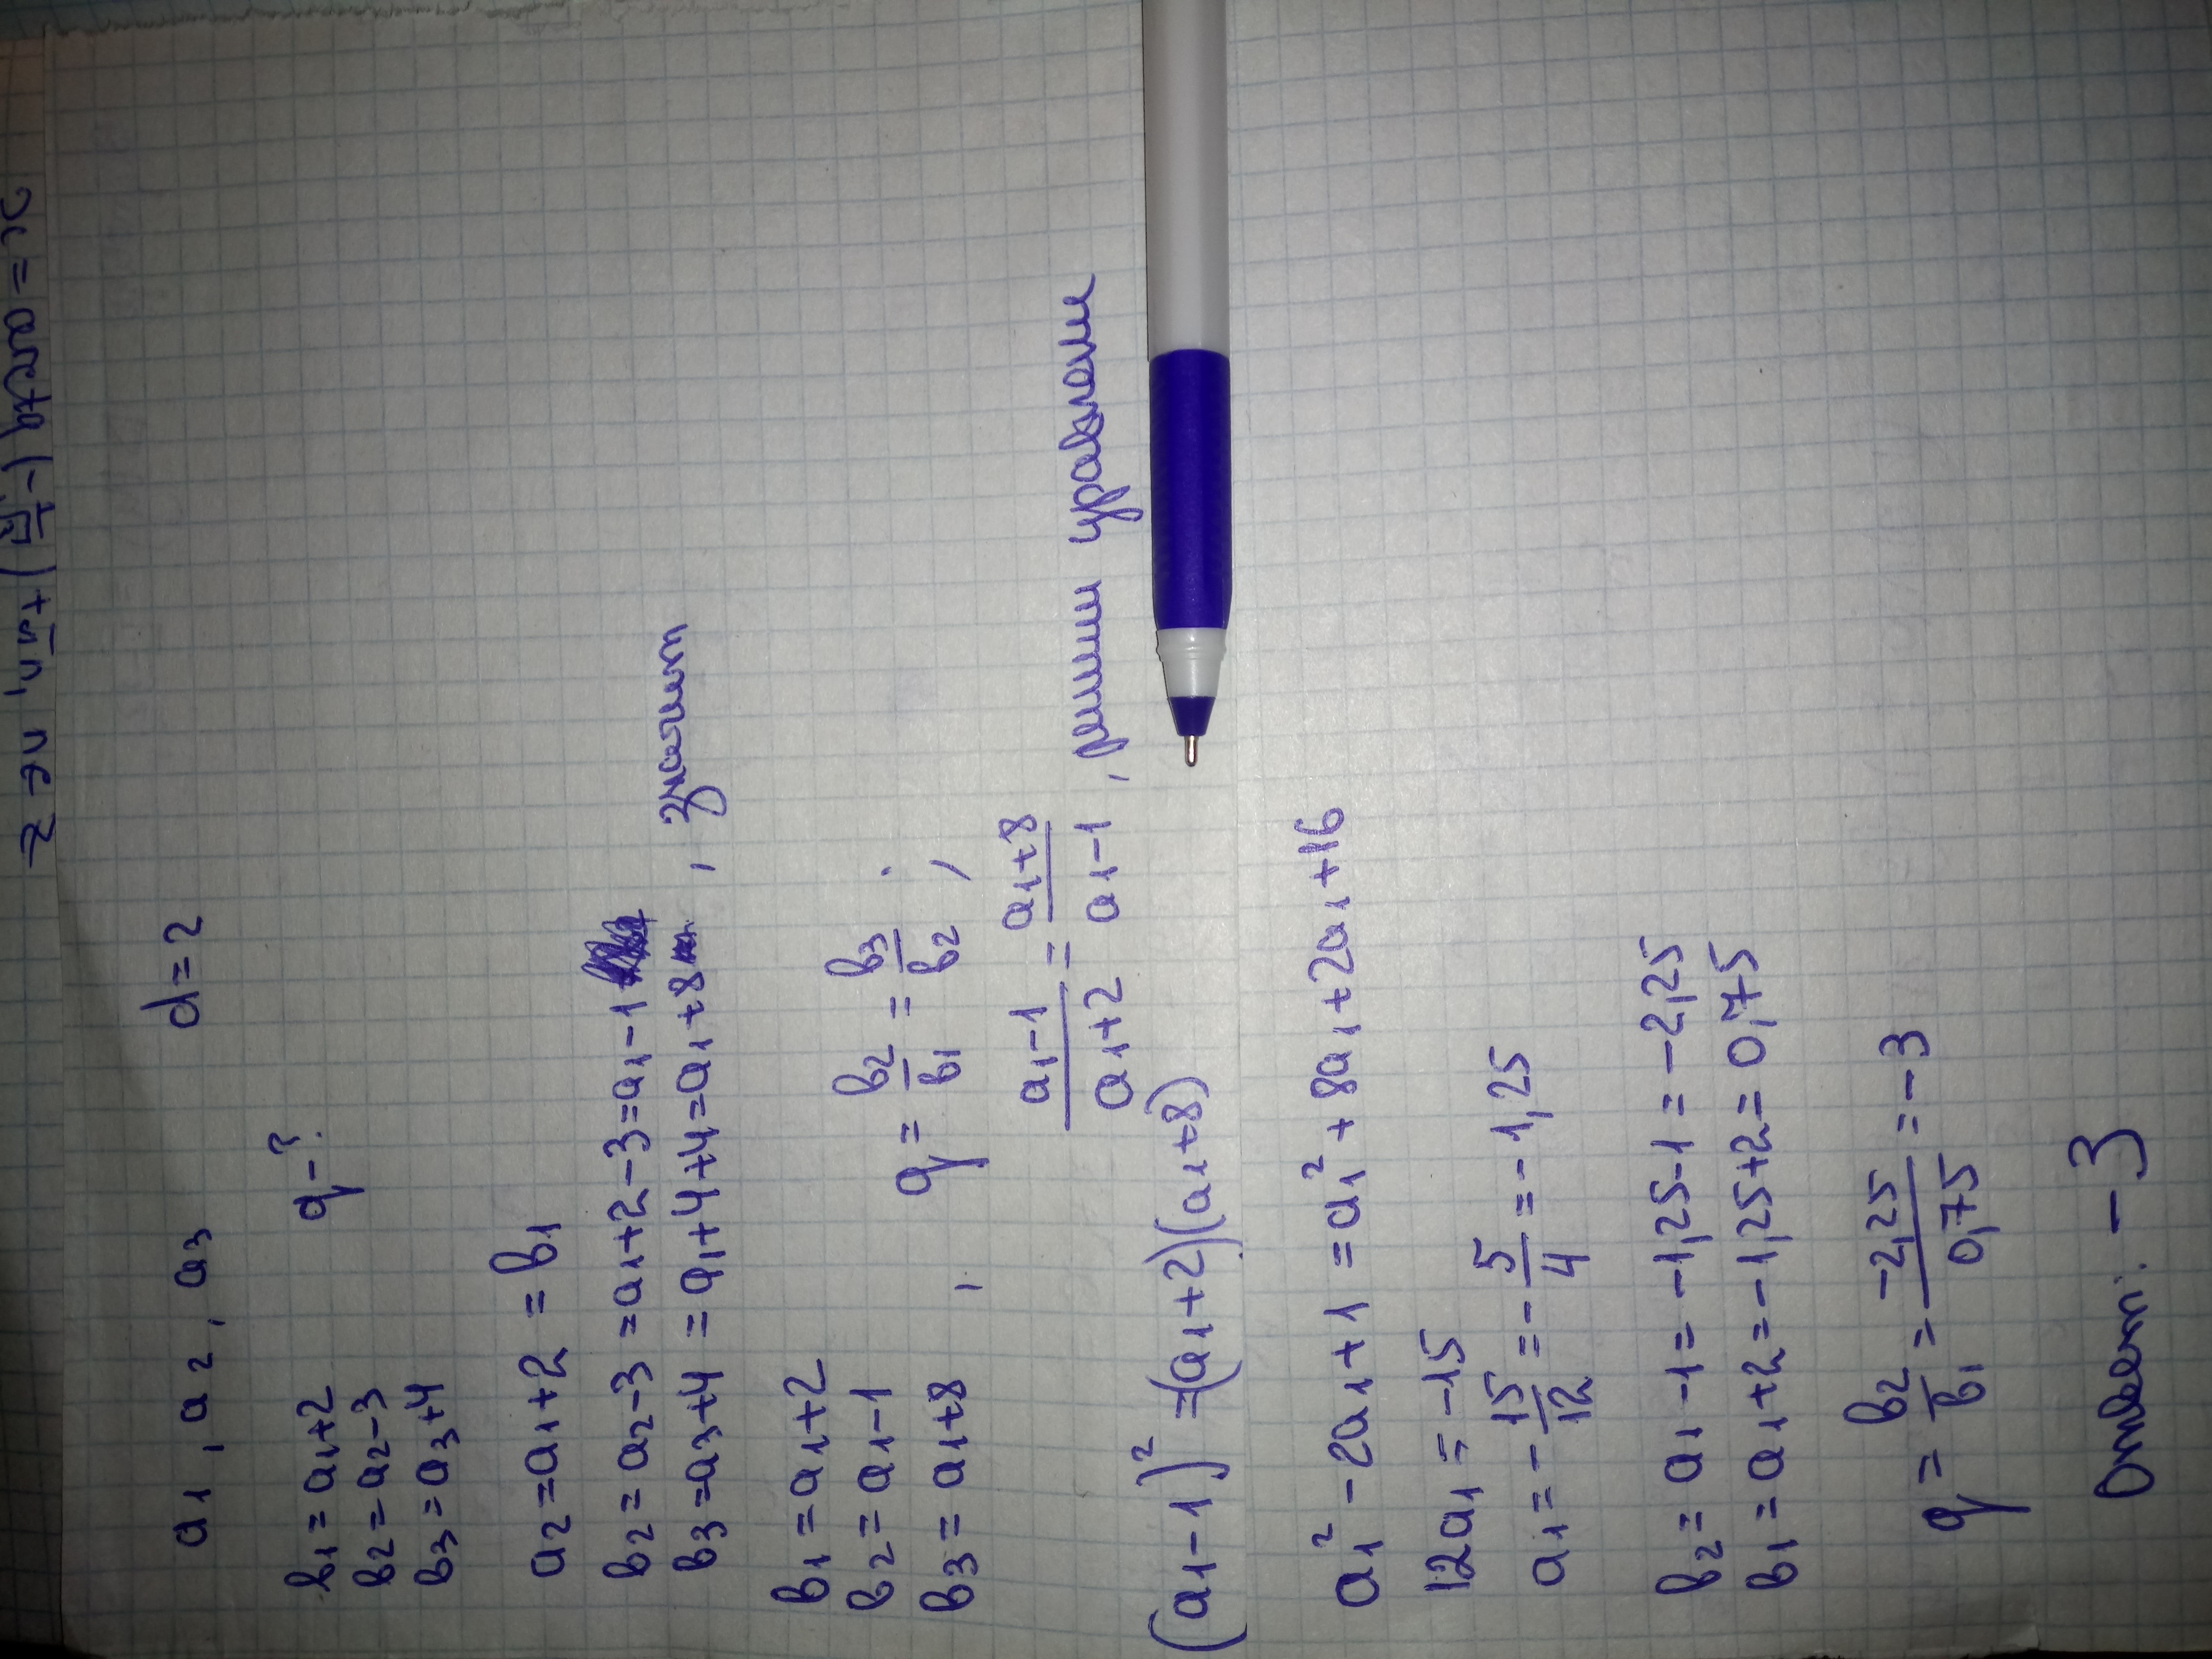 a₁, a₂, a₃ d=2
b₁=a₁+2 q-?
b₂=a₂-3
b₃=a₃+4
a₂=a₁+2=b₁
b₂=a₂-3=a₁+2-3=a₁-1
b₃=a₃+4=a₁+4+4=a₁+8, значит
b₁=a₁+2
b₂=a₁-1 , q = b₂/b₁ = b₃/b₂ ;
b₃=a₁+8
(a₁-1)/(a₁+2) = (a₁+8)/(a₁-1), решим уравнение
(a₁-1)²=(a₁+2)(a₁+8)
a₁²-2a₁+1=a₁²+8a₁+2a₁+16
12a₁=-15
a₁=-15/12=-5/4=-1,25
b₂=a₁-1=-1,25-1=-2,25
b₁=a₁+2=-1,25+2=0,75
q = b₂/b₁ = -2,25/0,75 = -3
Ответ: -3